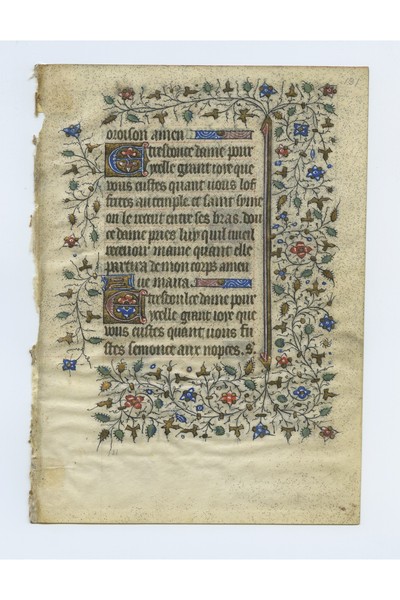 oroison amen
Et tresdoulce dame pour
ycelle grant ioye que
vous eustes quant vous lof
frites au temple et saint syme
on le receut entre ses bras. doul
ce dame pries luy quil vueil
recevoir mame quant elle
partira de mon corps amen
aue maria.
Et tresdoulce dame pour
ycelle grant ioye que
vous eustes quant vous fu
stes semonce aux nopces. s.